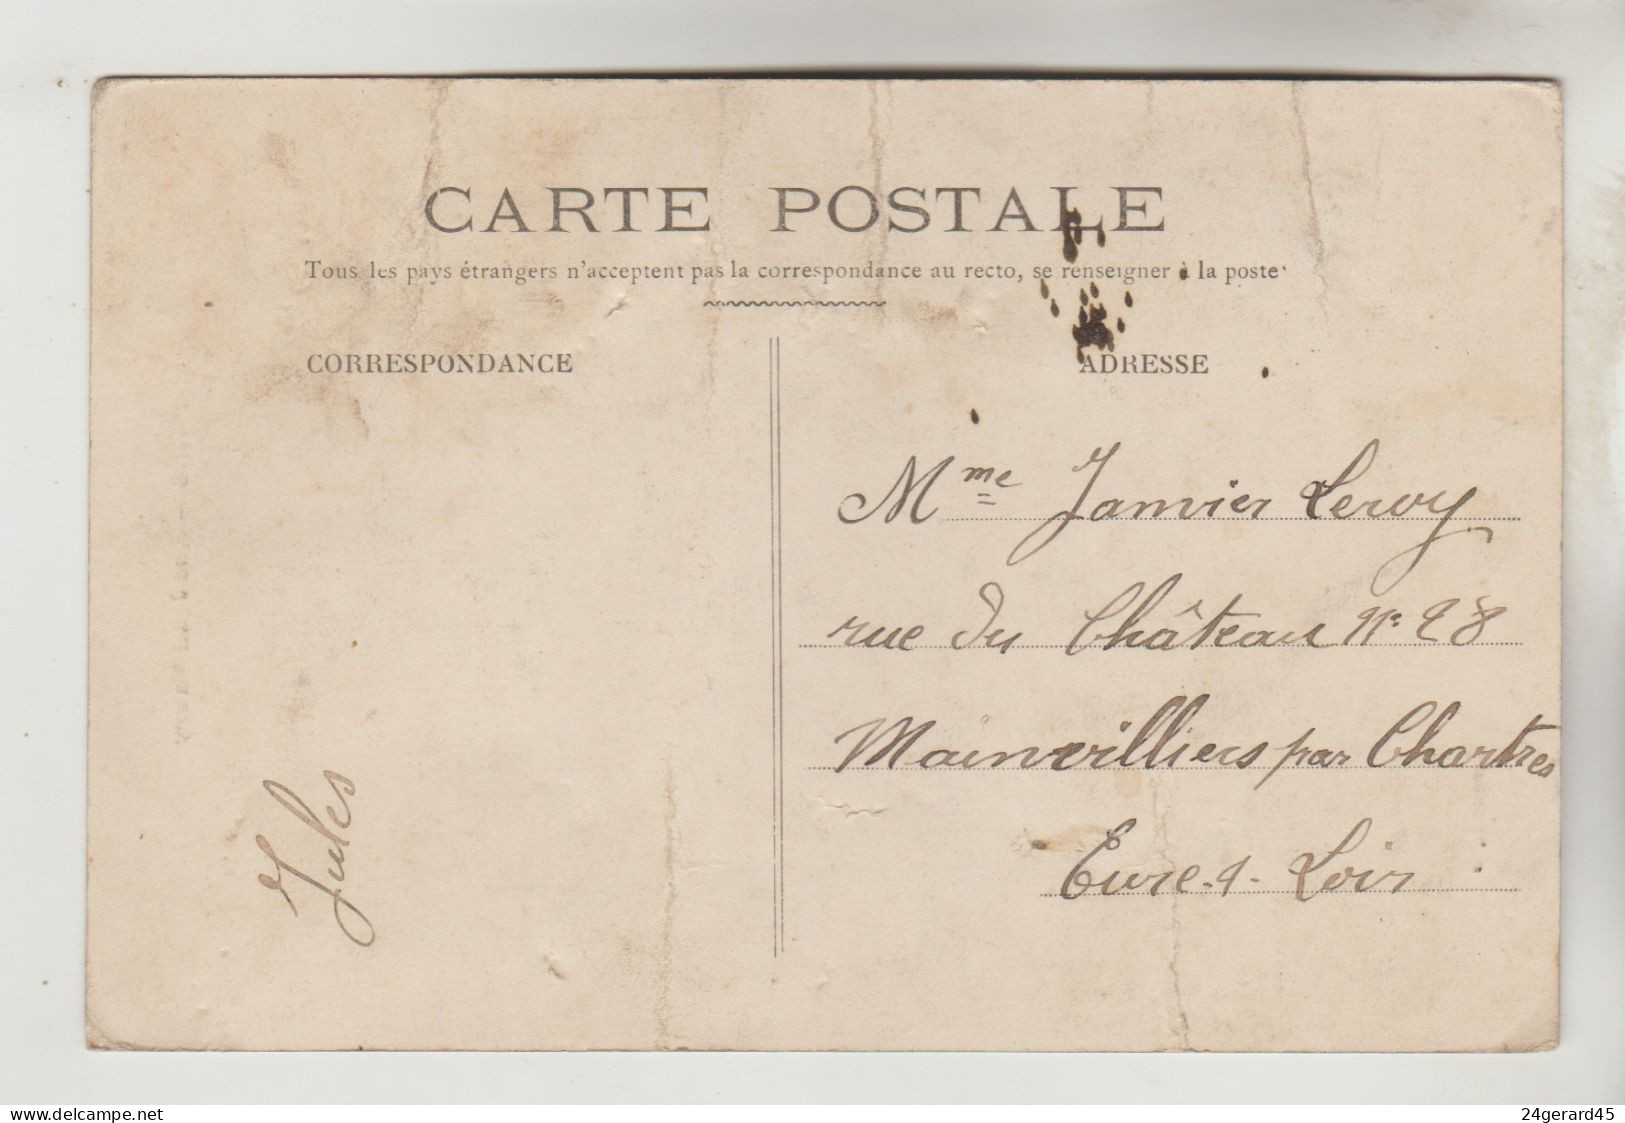 CARTE POSTALE
Tous les pays étrangers n'acceptent pas la correspondance au recto, se renseigner à la poste
CORRESPONDANCE
ADRESSE
Mme Janvier Leroy
rue du Château n° 28
Mainvilliers par Chartres
Eure-&-Loir
Jules
www.delcampe.net
24gerard45